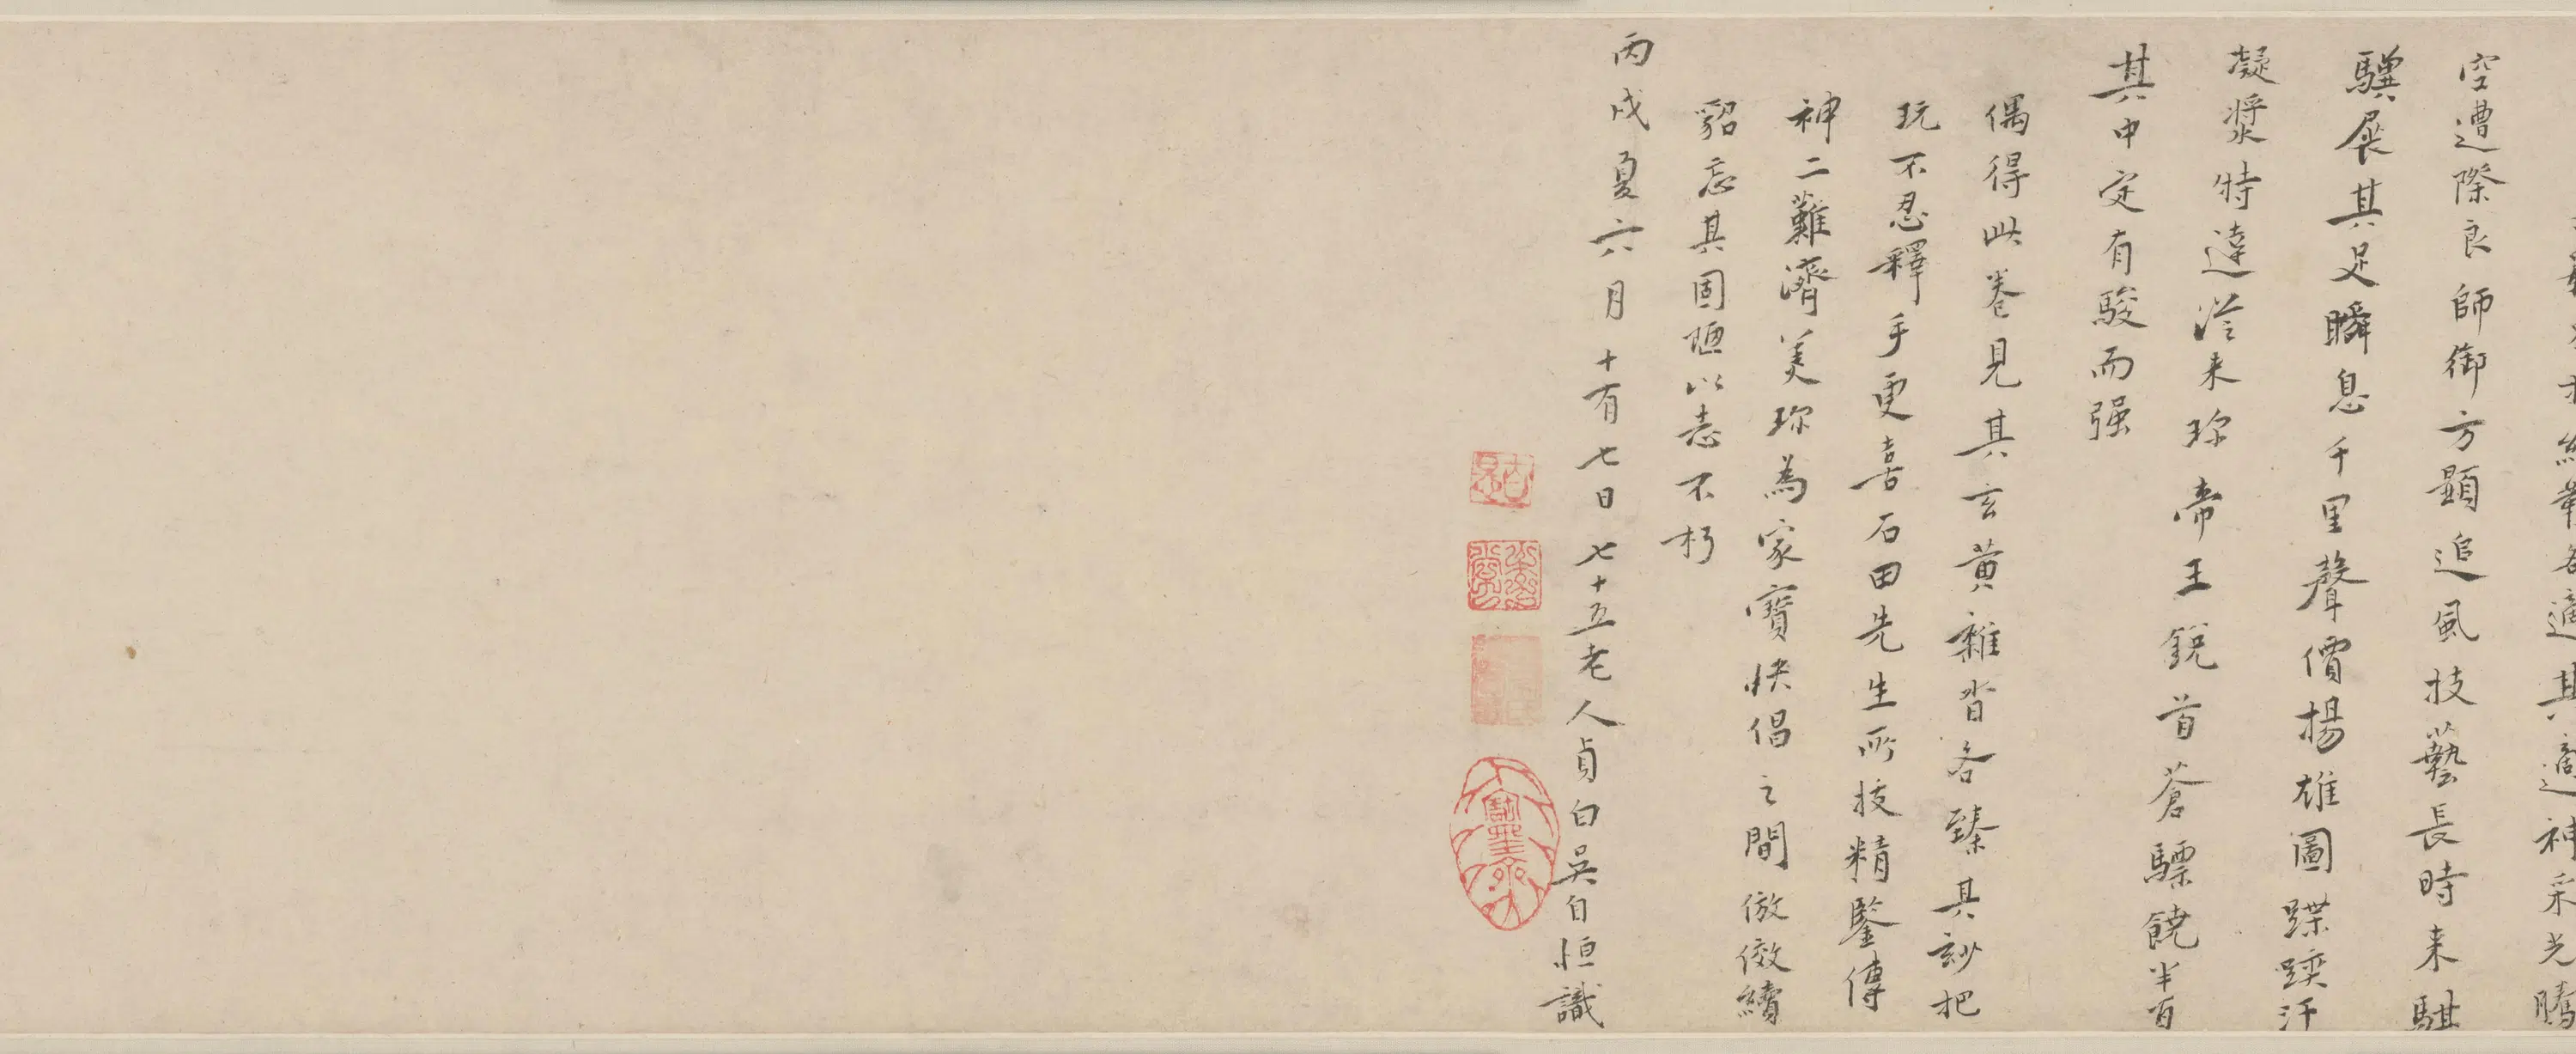 各適其適神采光騰
空遭際良師御方顯追風技藝長時来騏
驥展其足瞬息千里聲價揚雄圖蹀躞汗
凝漿特達從来珎帝王銳首蒼驃饒半百
其中定有駿而强
偶得此卷見其玄黄雜沓各臻其玅把
玩不忍釋手更喜石田先生所技精鑒傳
神二難濟美珎為家寶快倡之間倣傚續
貂忘其固陋以志不朽
丙戌夏六月十有七日七十五老人貞白吳自恒識